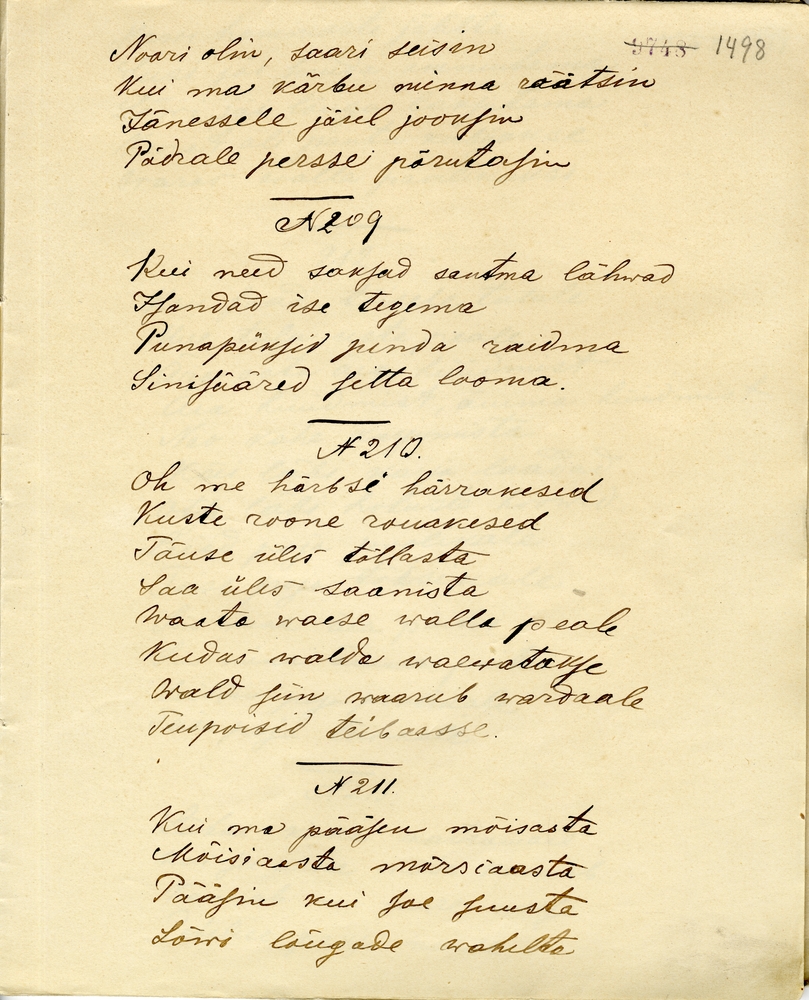 1498
Noori olin, saari seisin
Kui ma kärbu minna räätsin
Jänessele järel jooksin
Pödrale persse pörutasin
N 209
Kui need saksad sautma lähwad
Isandad ise tegema
Punapüksid pinda raidma
Sinisääred sitta looma.
N 210.
Oh me härbsi härrakesed
Kuste roone rouakesed
Töuse üles töllasta
Saa üles saanista
Waata waese walla peale
Kudas walda waewatakse
Wald siin waarub wardaale
Teupoisid teibaasse.
N 211.
Kui ma pääsen möisasta
Möisiaasta mörsiaasta
Pääsin kui soe suusta
Löwi löugade wahelta